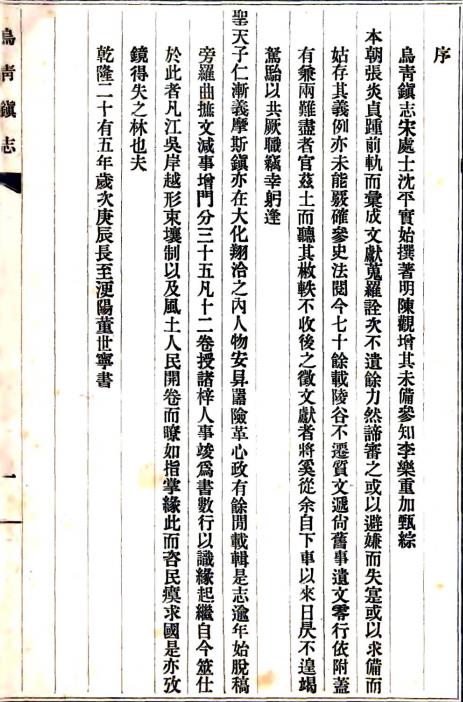 序
烏青鎮志宋處士沈平實始撰著明陳觀增其未備參知李樂重加甄綜
本朝張炎貞踵前軌而彙成文獻蒐羅詮次不遺餘力然諦審之或以避嫌而失寔或以求備而
姑存其義例亦未能覈確參史法閱今七十餘載陵谷不遷質文遞尙舊事遺文零行依附蓋
有兼兩難盡者官茲土而聽其散軼不收後之徵文獻者將奚從余自下車以來日昃不遑竭
駑駘以共厥職竊幸躬逢
聖天子仁漸義摩斯鎮亦在大化翔洽之內人物安阜嚚險革心政有餘閒載輯是志逾年始脫稿
旁羅曲摭文減事增門分三十五凡十二卷授諸梓人事竣爲書數行以識緣起繼自今筮仕
於此者凡江吳岸越形束壤制以及風土人民開卷而瞭如指掌緣此而咨民瘼求國是亦攷
鏡得失之林也夫
乾隆二十有五年歲次庚辰長至浭陽董世寧書
烏青鎮志
一